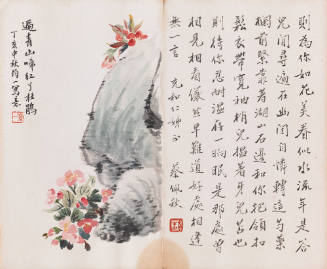 則為你如花美眷似水流年是答
兒閒尋遍在幽閨自憐轉這芍藥
欄前緊靠著湖山石邊和你把領扣
鬆衣帶寬袖梢兒搵著牙兒苫也
則待你忍耐溫存一晌眠是那處曾
相見相看儼然早難道好處相逢
無一言 充和仁姊 蔡佩秋
遍青山啼紅了杜鵑
丁亥中秋 寫意